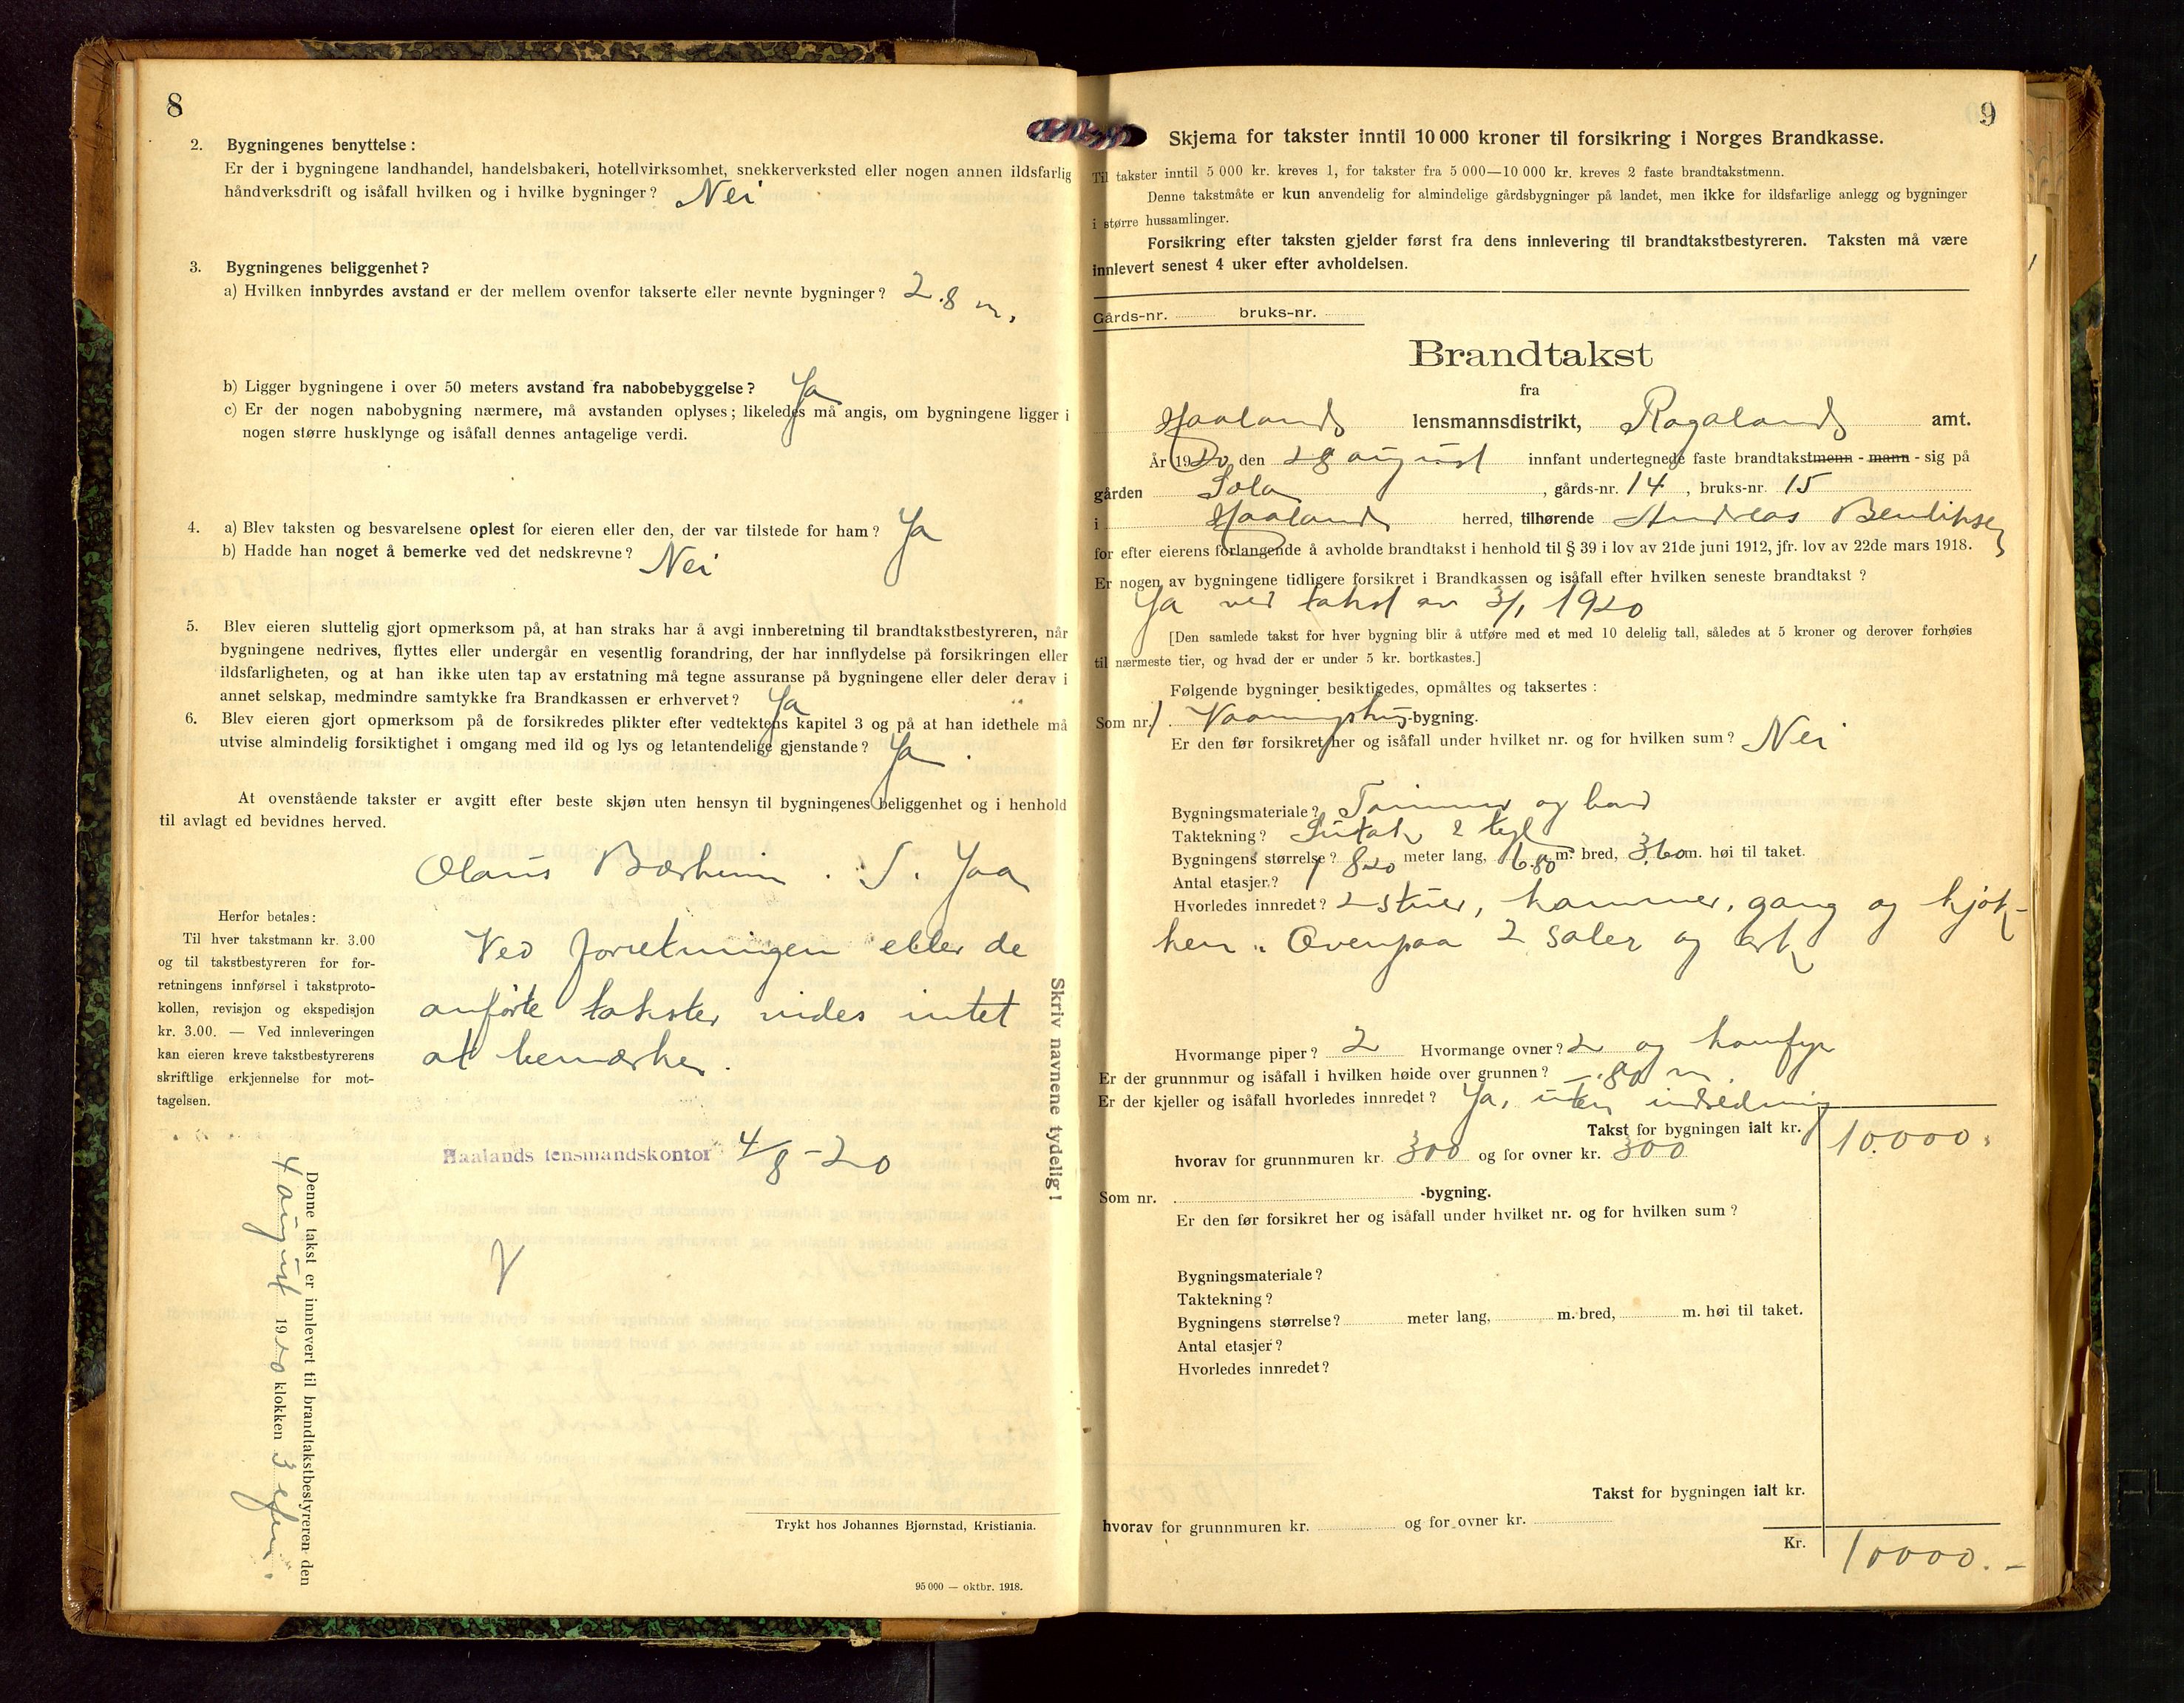 8
2. Bygningenes benyttelse:
Er der i bygningene landhandel, handelsbakeri, hotellvirksomhet, snekkerverksted eller nogen annen ildsfarlig
håndverksdrift og isåfall hvilken og i hvilke bygninger? Nei
3. Bygningenes beliggenhet?
a) Hvilken innbyrdes avstand er der mellem ovenfor takserte eller nevnte bygninger? 2.8 m.
b) Ligger bygningene i over 50 meters avstand fra nabobebyggelse? Ja
c) Er der nogen nabobygning nærmere, må avstanden oplyses; likeledes må angis, om bygningene ligger i
nogen større husklynge og isåfall dennes antagelige verdi.
4. a) Blev taksten og besvarelsene oplest for eieren eller den, der var tilstede for ham? Ja
b) Hadde han noget å bemerke ved det nedskrevne? Nei
5. Blev eieren sluttelig gjort opmerksom på, at han straks har å avgi innberetning til brandtakstbestyreren, når
bygningene nedrives, flyttes eller undergår en vesentlig forandring, der har innflydelse på forsikringen eller
ildsfarligheten, og at han ikke uten tap av erstatning må tegne assuranse på bygningene eller deler derav i
annet selskap, medmindre samtykke fra Brandkassen er erhvervet? Ja
6. Blev eieren gjort opmerksom på de forsikredes plikter efter vedtektens kapitel 3 og på at han idethele må
utvise almindelig forsiktighet i omgang med ild og lys og letantendelige gjenstande? Ja.
At ovenstående takster er avgitt efter beste skjøn uten hensyn til bygningenes beliggenhet og i henhold
til avlagt ed bevidnes herved.
Olaus Bærheim. S. Jaa
Herfor betales:
Til hver takstmann kr. 3.00
og til takstbestyreren for for-
retningens innførsel i takstproto-
kollen, revisjon og ekspedisjon
kr. 3.00. — Ved innleveringen
kan eieren kreve takstbestyrerens
skriftlige erkjennelse for mot-
tagelsen.
Ved forretningen eller de
anførte takster vides intet
at bemærke.
Skriv navnene tydelig!
Haalands lensmandskontor 4/8-20
Denne takst er innlevert til brandtakstbestyreren den
4 august 1920 klokken 3 efm.
Trykt hos Johannes Bjørnstad, Kristiania.
95 000 — oktbr. 1918.
9
Skjema for takster inntil 10 000 kroner til forsikring i Norges Brandkasse.
Til takster inntil 5 000 kr. kreves 1, for takster fra 5 000—10 000 kr. kreves 2 faste brandtakstmenn.
Denne takstmåte er kun anvendelig for almindelige gårdsbygninger på landet, men ikke for ildsfarlige anlegg og bygninger
i større hussamlinger.
Forsikring efter taksten gjelder først fra dens innlevering til brandtakstbestyreren. Taksten må være
innlevert senest 4 uker efter avholdelsen.
Gårds-nr. bruks-nr.
Brandtakst
fra
Haaland lensmannsdistrikt, Rogaland amt.
År 1920 den 28 august innfant undertegnede faste brandtakstmenn - mann - sig på
gården Sola, gårds-nr. 14, bruks-nr. 15
i Haaland herred, tilhørende Andreas
for efter eierens forlangende å avholde brandtakst i henhold til § 39 i lov av 21de juni 1912, jfr. lov av 22de mars 1918.
Er nogen av bygningene tidligere forsikret i Brandkassen og isåfall efter hvilken seneste brandtakst?
Ja ved takst av 3/1 1920
[Den samlede takst for hver bygning blir å utføre med et med 10 delelig tall, således at 5 kroner og derover forhøies
til nærmeste tier, og hvad der er under 5 kr. bortkastes.]
Følgende bygninger besiktigedes, opmåltes og taksertes:
Som nr. 1 Vaaningshus-bygning.
Er den før forsikret her og isåfall under hvilket nr. og for hvilken sum? Nei
Bygningsmateriale? Tømmer og bord
Taktekning? Sutak & tegl
Bygningens størrelse? 8.20 meter lang, 6.80 m. bred, 3.60 m. høi til taket.
Antal etasjer? 1
Hvorledes innredet? 2 stuer, kammer, gang og kjøk-
ken. Ovenpaa 2 saler og ark
Hvormange piper? 2 Hvormange ovner? 2 og komfyr
Er der grunnmur og isåfall i hvilken høide over grunnen? -.80 m.
Er der kjeller og isåfall hvorledes innredet? Ja, uten indredning
Takst for bygningen ialt kr. 10000.
hvorav for grunnmuren kr. 300 og for ovner kr. 300
Som nr. -bygning.
Er den før forsikret her og isåfall under hvilket nr. og for hvilken sum?
Bygningsmateriale?
Taktekning?
Bygningens størrelse? meter lang, m. bred, m. høi til taket.
Antal etasjer?
Hvorledes innredet?
Takst for bygningen ialt kr.
hvorav for grunnmuren kr. og for ovner kr.
Kr. 10000.-